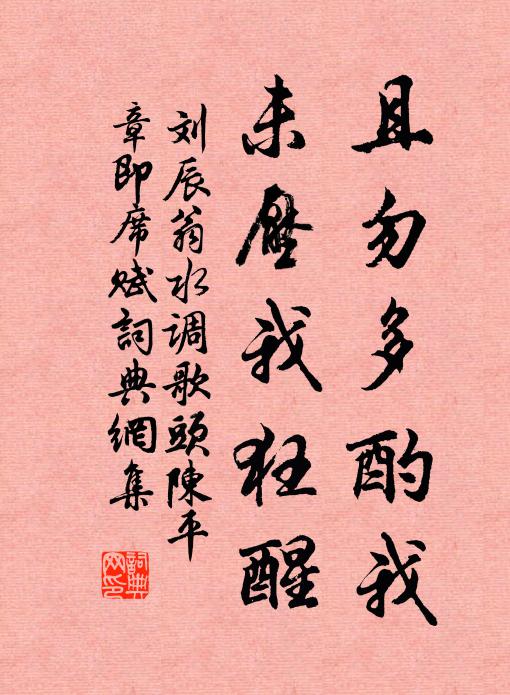 且勿多酌我
未厌我狂醒
刘辰翁水调歌头陈平
章即席赋词典网集
词典网印